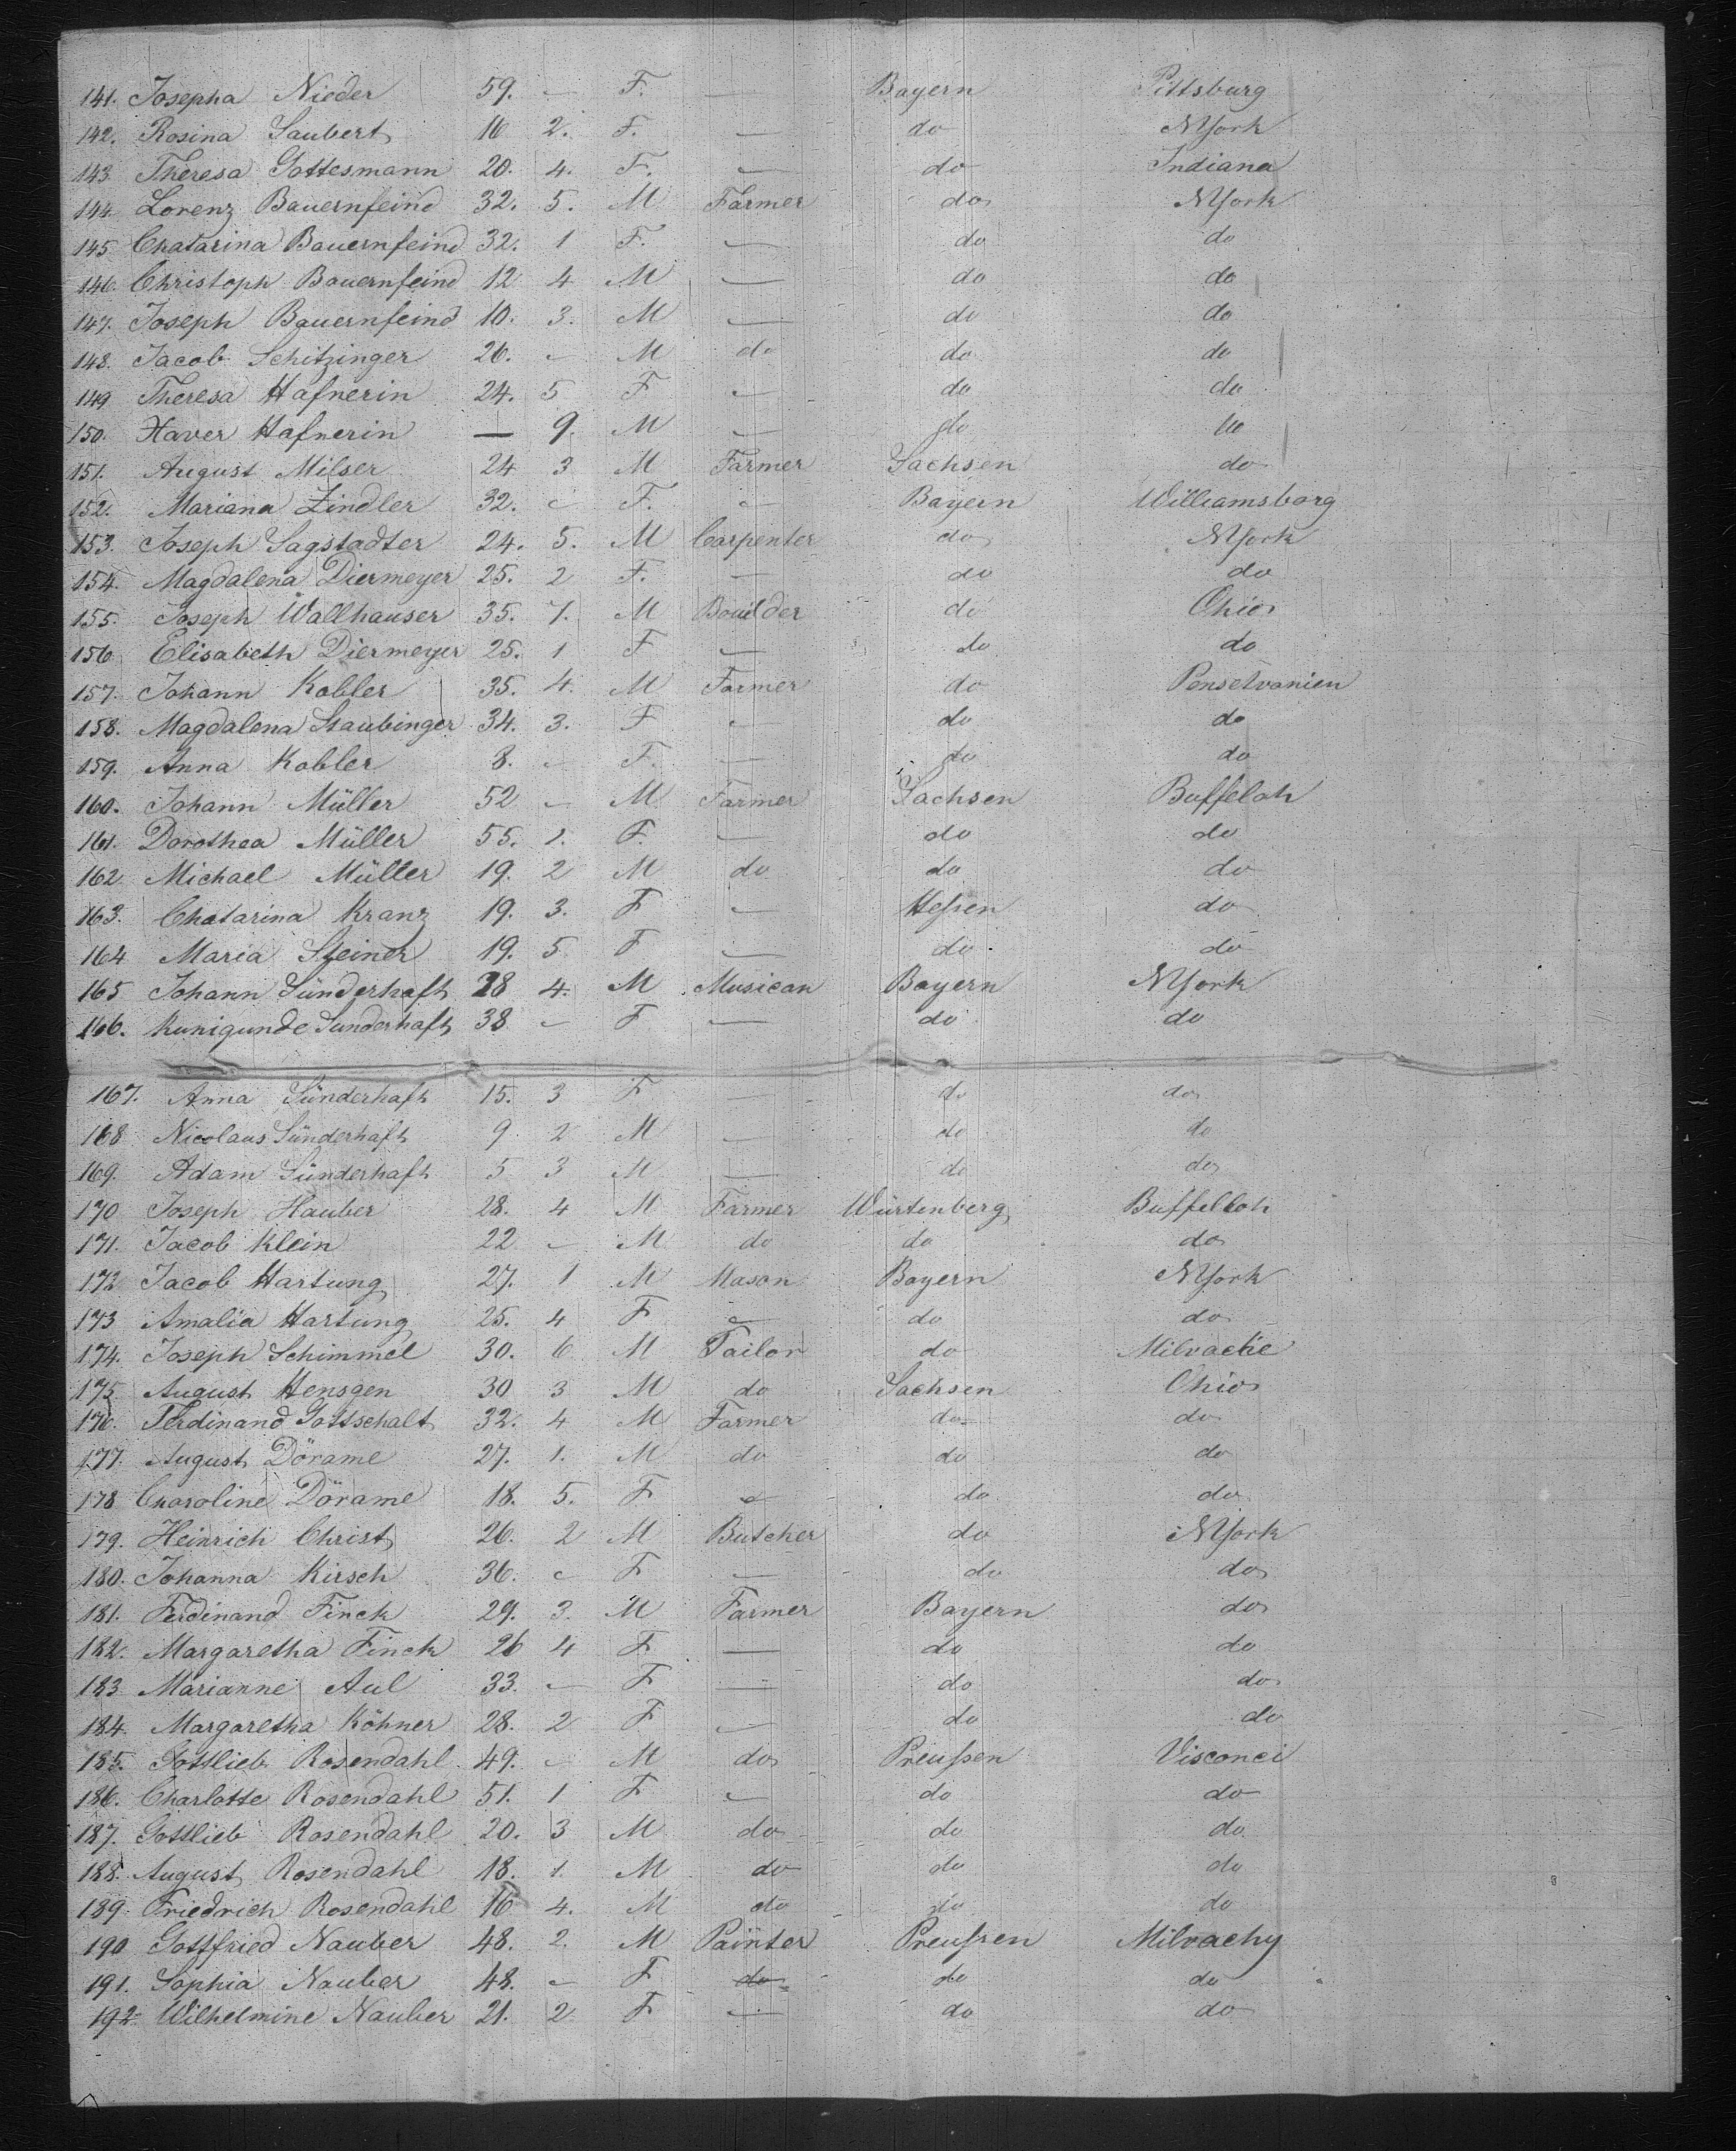 141. Josepha Nieder 59. — F. — Bayern Pittsburg
142. Rosina Saubert 16 2. F. — do NYork
143. Theresa Gottesmann 20. 4. F. — do Indiana
144. Lorenz Bauernfeind 32. 5. M Farmer do NYork
145 Chatarina Bauernfeind 32. 1 F. — do do
146. Christoph Bauernfeind 12 4 M — do do
147. Joseph Bauernfeind 10. 3. M — do do
148. Jacob Schitzinger 26. — M do do do
149 Theresa Hafnerin 24. 5 F — do do
150. Xaver Hafnerin — 9. M — do do
151. August Milser 24 3 M Farmer Sachsen do
152. Mariana Zindler 32. — F. — Bayern Williamsborg
153. Joseph Sagstadter 24. 5. M Carpenter do NYork
154. Magdalena Diermeyer 25. 2 F. — do do
155. Joseph Wallhauser 35. 7. M Bouilder do Ohio
156 Elisabeth Diermeyer 25. 1 F — do do
157. Johann Kobler 35. 4. M Farmer do Penselvanien
158. Magdalena Staubinger 34. 3. F — do do
159. Anna Kobler 8. — F. — do do
160. Johann Müller 52 — M Farmer Sachsen Buffeloh
161. Dorothea Müller 55. 1. F. — do do
162 Michael Müller 19. 2 M do do do
163. Chatarina Kranz 19. 3. F — Heſsen do
164 Maria Steiner 19. 5 F — do do
165 Johann Sünderhaft 28 4. M Musican Bayern NYork
166. Kunigunde Sunderhaft 38 — F — do do
167. Anna Sünderhaft 15. 3 F — do do
168 Nicolaus Sünderhaft 9 2 M — do do
169. Adam Sünderhaft 5 3 M — do do
170 Joseph Hauber 28. 4 M Farmer Würtenberg Buffelloh
171. Jacob Klein 22 — M do do do
172 Jacob Hartung 27. 1 M Mason Bayern NYork
173 Amalia Hartung 25. 4 F — do do
174. Joseph Schimmel 30. 6 M Tailor do Milvackie
175 August Hensgen 30 3 M do Sachsen Ohio
176. Ferdinand Gottschalt 32. 4 M Farmer do do
177. August Dörame 27. 1. M do do do
178 Charoline Dörame 18. 5. F — do do
179. Heinrich Christ 26. 2 M Butcher do NYork
180. Johanna Kirsch 36. — F — do do
181. Ferdinand Finck 29. 3. M Farmer Bayern do
182. Margaretha Finck 26 4 F — do do
183 Marianne Aul 33. — F — do do
184. Margaretha Köhner 28. 2 F — do do
185. Gottlieb Rosendahl 49. — M do Preuſsen Visconci
186. Charlotte Rosendahl 51. 1 F — do do
187. Gottlieb Rosendahl 20. 3 M do do do
188. August Rosendahl 18. 1. M do do do
189. Friedrich Rosendahl 16 4. M do do do
190 Gottfried Nauber 48. 2. M Painter Preuſsen Milvachy
191. Sophia Nauber 48. — F do do do
192 Wilhelmine Nauber 21. 2 F — do do